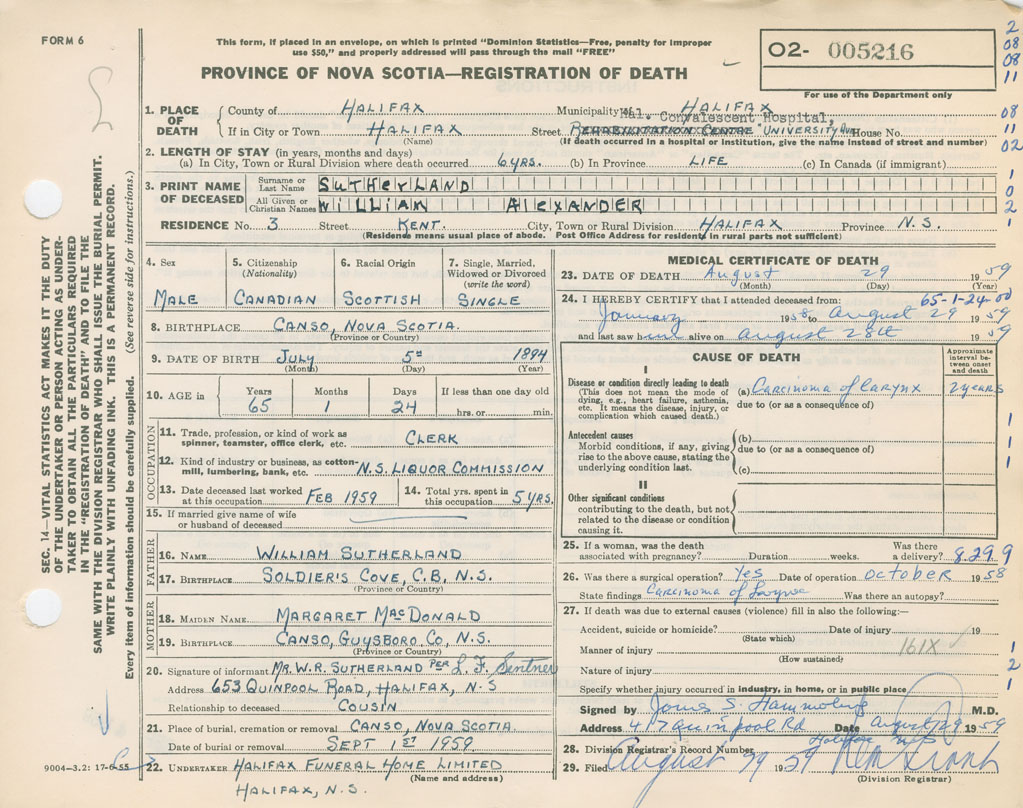 FORM 6
This form, if placed in an envelope, on which is printed "Dominion Statistics—Free, penalty for improper
use $50," and properly addressed will pass through the mail "FREE"
PROVINCE OF NOVA SCOTIA—REGISTRATION OF DEATH
O2- 005216
For use of the Department only
2
08
08
11
1. PLACE OF DEATH { County of HALIFAX Municipality HALIFAX 08
Hal. Convalescent Hospital,
If in City or Town HALIFAX Street REHABILITATION CENTRE UNIVERSITY AVE House No. 11
(Name) (If death occurred in a hospital or institution, give the name instead of street and number) 02
2. LENGTH OF STAY (in years, months and days)
(a) In City, Town or Rural Division where death occurred 6 YRS. (b) In Province LIFE (c) In Canada (if immigrant)
3. PRINT NAME OF DECEASED { Surname or Last Name SUTHERLAND 1
0
All Given or Christian Names WILLIAN ALEXANDER 2
RESIDENCE No. 3 Street KENT. City, Town or Rural Division HALIFAX Province N.S. 1
(Residence means usual place of abode. Post Office Address for residents in rural parts not sufficient)
4. Sex MALE
5. Citizenship (Nationality) CANADIAN
6. Racial Origin SCOTTISH
7. Single, Married, Widowed or Divorced (write the word) SINGLE
8. BIRTHPLACE CANSO, NOVA SCOTIA.
(Province or Country)
9. DATE OF BIRTH JULY 5th 1894
(Month) (Day) (Year)
10. AGE in Years 65 Months 1 Days 24 If less than one day old hrs. or min.
OCCUPATION
11. Trade, profession, or kind of work as spinner, teamster, office clerk, etc. CLERK
12. Kind of industry or business, as cotton-mill, lumbering, bank, etc. N.S. LIQUOR COMMISSION
13. Date deceased last worked at this occupation FEB 1959 14. Total yrs. spent in this occupation 5 YRS.
15. If married give name of wife or husband of deceased
FATHER
16. NAME WILLIAM SUTHERLAND
17. BIRTHPLACE SOLDIER'S COVE, C.B, N.S.
(Province or Country)
MOTHER
18. MAIDEN NAME MARGARET MACDONALD
19. BIRTHPLACE CANSO, GUYSBORO, CO, N.S.
(Province or Country)
20. Signature of informant MR. W.R. SUTHERLAND PER L. F. Sentner
Address 653 QUINPOOL ROAD, HALIFAX, N.S
Relationship to deceased COUSIN
21. Place of burial, cremation or removal CANSO, NOVA SCOTIA.
Date of burial or removal SEPT 1st 1959.
22. UNDERTAKER HALIFAX FUNERAL HOME LIMITED
(Name and address)
HALIFAX, N.S.
MEDICAL CERTIFICATE OF DEATH
23. DATE OF DEATH August 29 1959
(Month) (Day) (Year)
24. I HEREBY CERTIFY that I attended deceased from: 65-1-24-00
January 1958 to August 29 1959
and last saw him alive on August 28th 1959
CAUSE OF DEATH
Approximate interval between onset and death
I
Disease or condition directly leading to death
(This does not mean the mode of dying, e.g., heart failure, asthenia, etc. It means the disease, injury, or complication which caused death.)
(a) Carcinoma of Larynx 2 years
due to (or as a consequence of)
Antecedent causes
Morbid conditions, if any, giving rise to the above cause, stating the underlying condition last.
(b)
due to (or as a consequence of)
(c)
1
1
1
II
Other significant conditions
contributing to the death, but not related to the disease or condition causing it.
25. If a woman, was the death associated with pregnancy? Duration weeks. Was there a delivery? 8.29.9
26. Was there a surgical operation? Yes Date of operation October 1958
State findings Carcinoma of Larynx Was there an autopsy?
27. If death was due to external causes (violence) fill in also the following:—
Accident, suicide or homicide? Date of injury 19
(State which)
Manner of injury 161X 1
(How sustained)
Nature of injury 2
Specify whether injury occurred in industry, in home, or in public place 1
Signed by James S. Hammerling M.D.
Address 417 Quinpool Rd Date August 29 1959
Halifax N.S
28. Division Registrar's Record Number
29. Filed August 29 1959
(Division Registrar)
SEC. 14—VITAL STATISTICS ACT MAKES IT THE DUTY
OF THE UNDERTAKER OR PERSON ACTING AS UNDER-
TAKER TO OBTAIN ALL THE PARTICULARS REQUIRED
IN THE "REGISTRATION OF DEATH" AND TO FILE THE
SAME WITH THE DIVISION REGISTRAR WHO SHALL ISSUE THE BURIAL PERMIT.
WRITE PLAINLY WITH UNFADING INK. THIS IS A PERMANENT RECORD.
Every item of information should be carefully supplied. (See reverse side for instructions.)
9004—3.2: 17-6-55